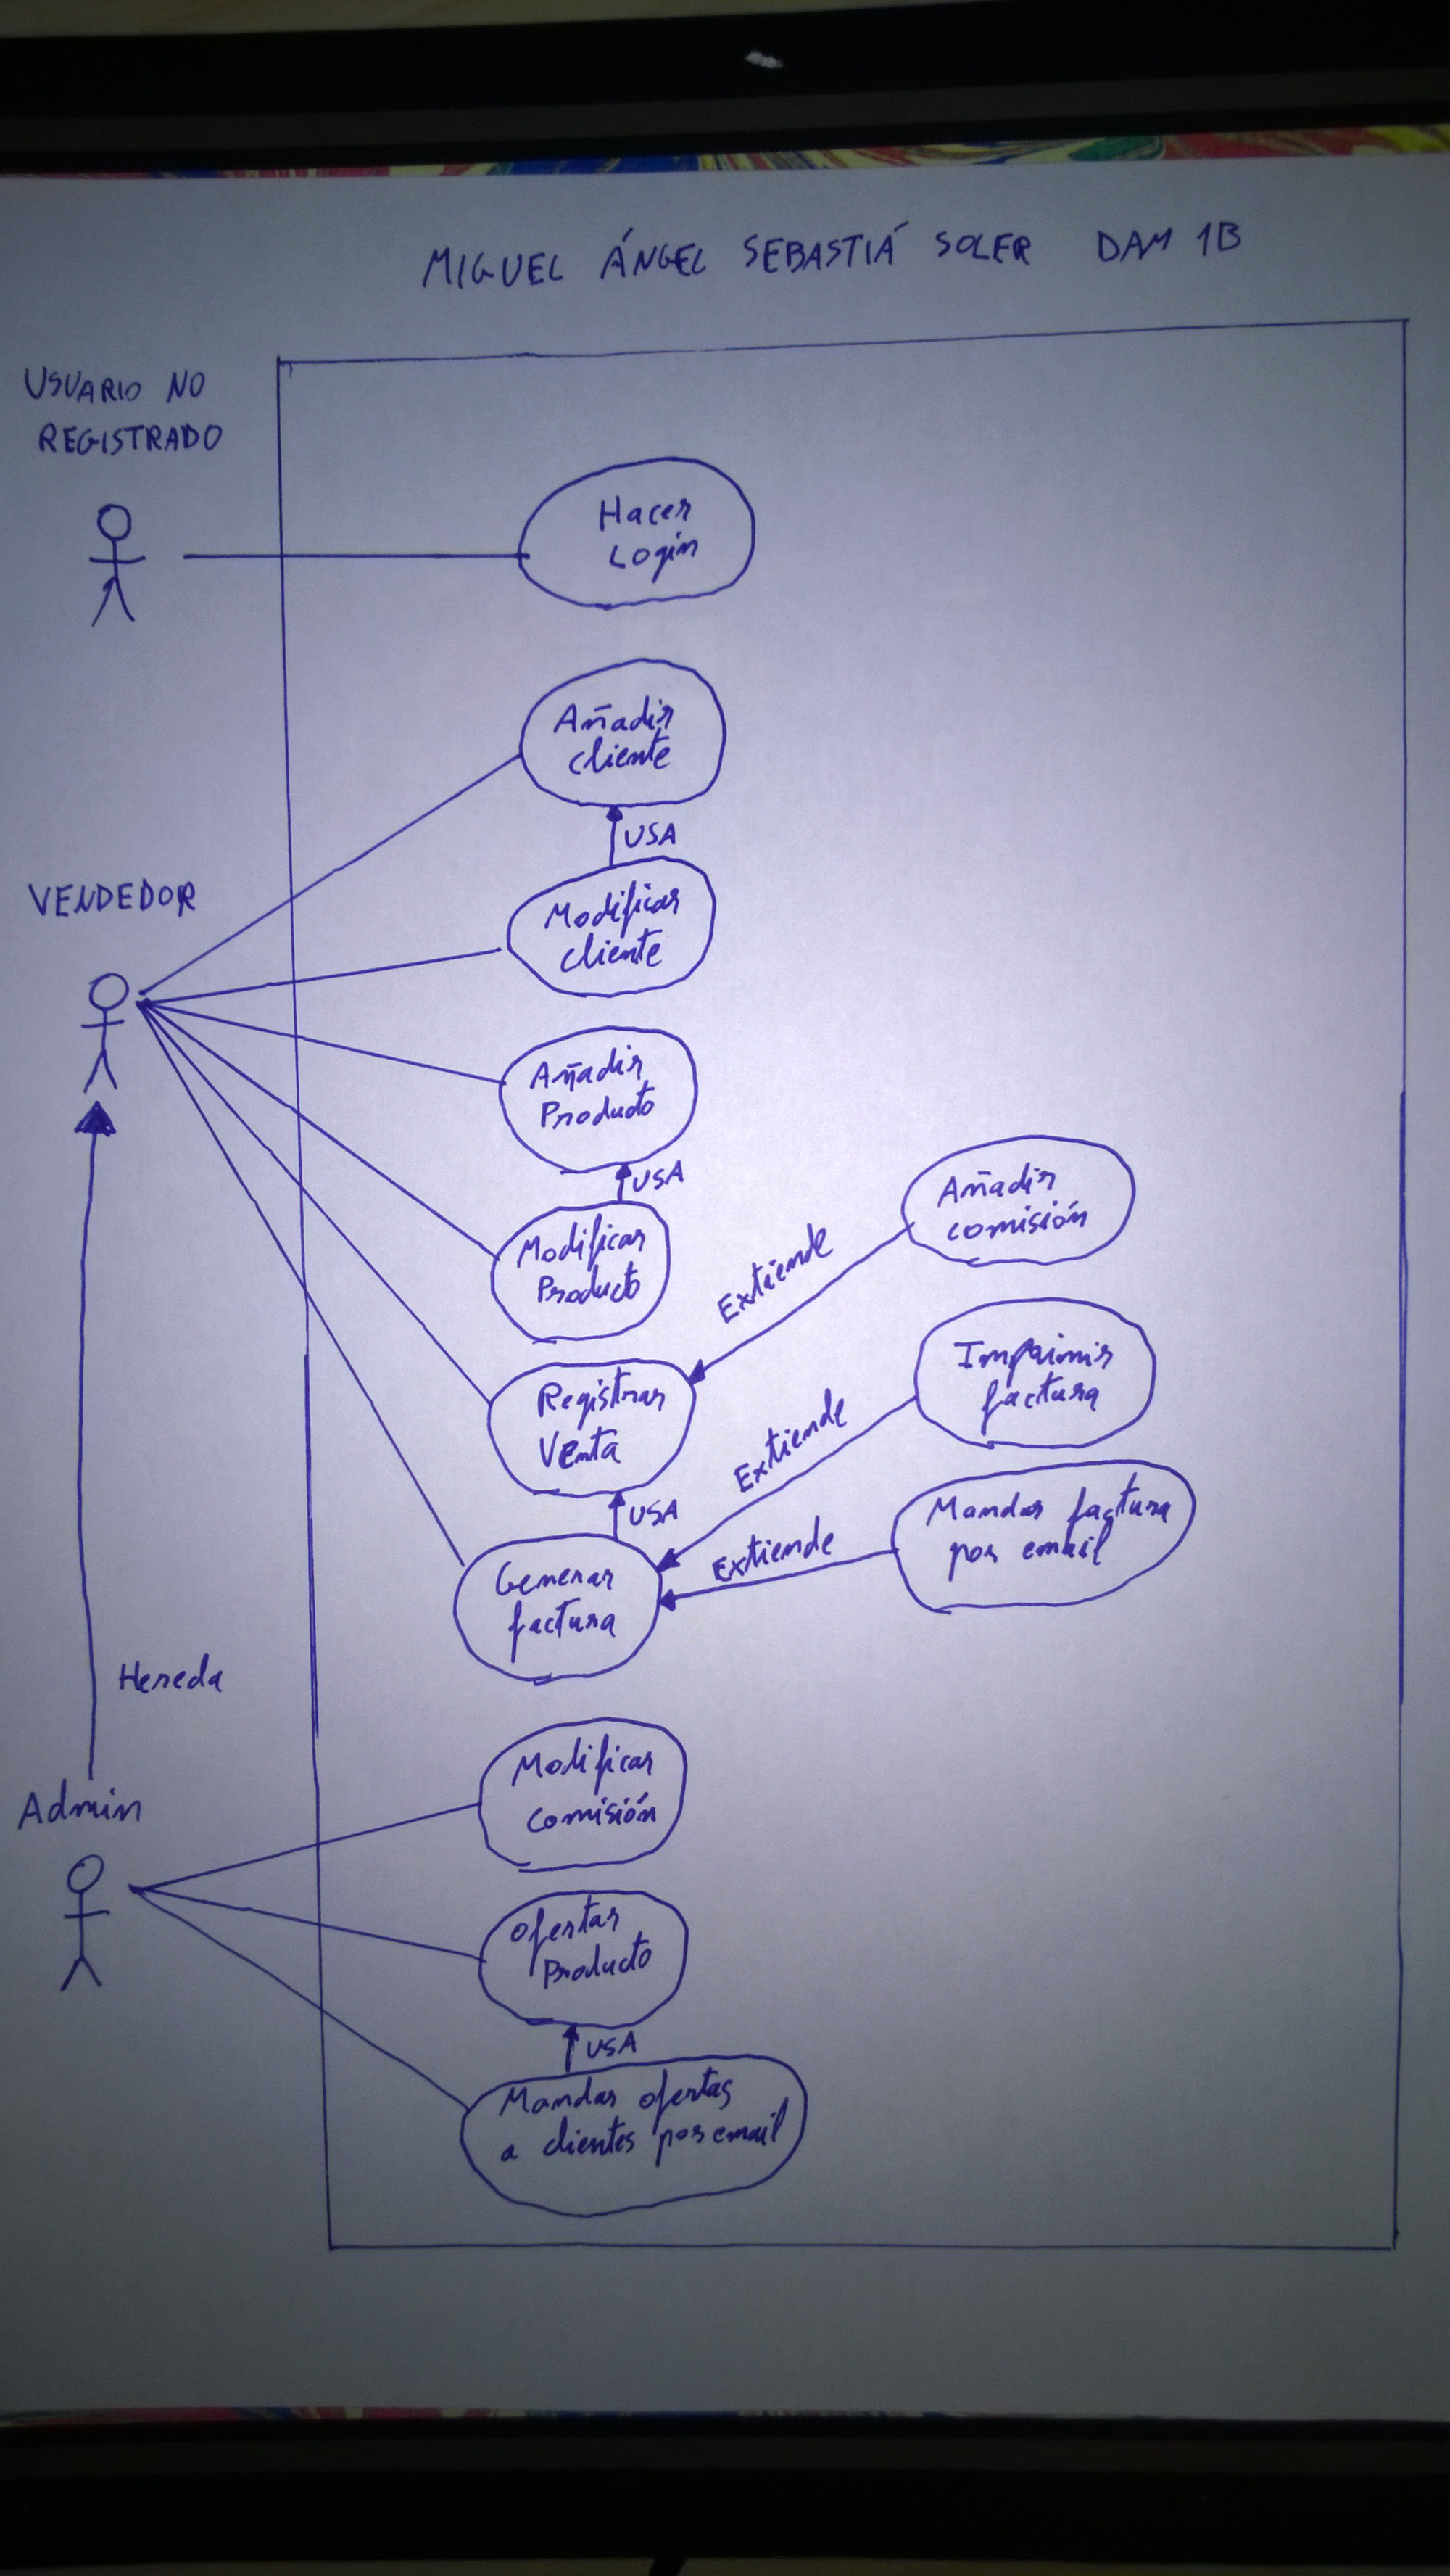 MIGUEL ÁNGEL SEBASTIÁ SOLER DAM 1B
USUARIO NO
REGISTRADO
Hacer
Login
Añadir
cliente
USA
VENDEDOR
Modificar
cliente
Añadir
Producto
USA
Modificar
Producto
Añadir
comisión
Extiende
Registrar
Venta
Imprimir
factura
Extiende
USA
Mandar factura
por email
Extiende
Generar
factura
Hereda
Admin
Modificar
comisión
Ofertar
Producto
USA
Mandar ofertas
a clientes por email